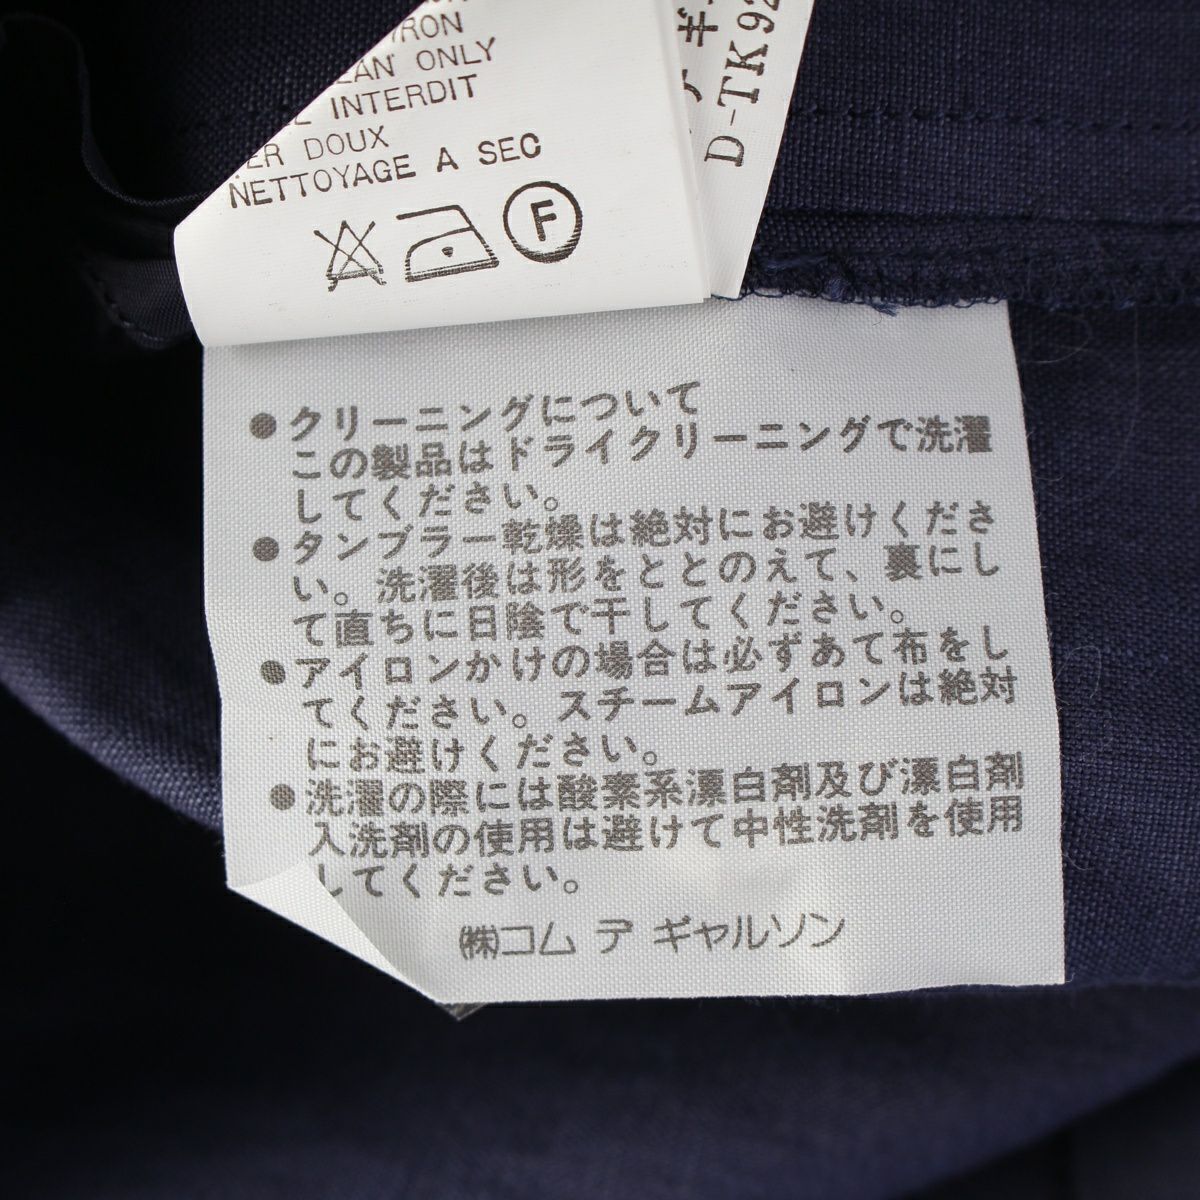 ONLY
INTERDIT
DOUX
NETTOYAGE A SEC
F
D-TK92
●クリーニングについて
この製品はドライクリーニングで洗濯
してください。
●タンブラー乾燥は絶対にお避けくださ
い。洗濯後は形をととのえて、裏にし
て直ちに日陰で干してください。
●アイロンかけの場合は必ずあて布をし
てください。スチームアイロンは絶対
にお避けください。
●洗濯の際には酸素系漂白剤及び漂白剤
入洗剤の使用は避けて中性洗剤を使用
してください。
㈱コム デ ギャルソン